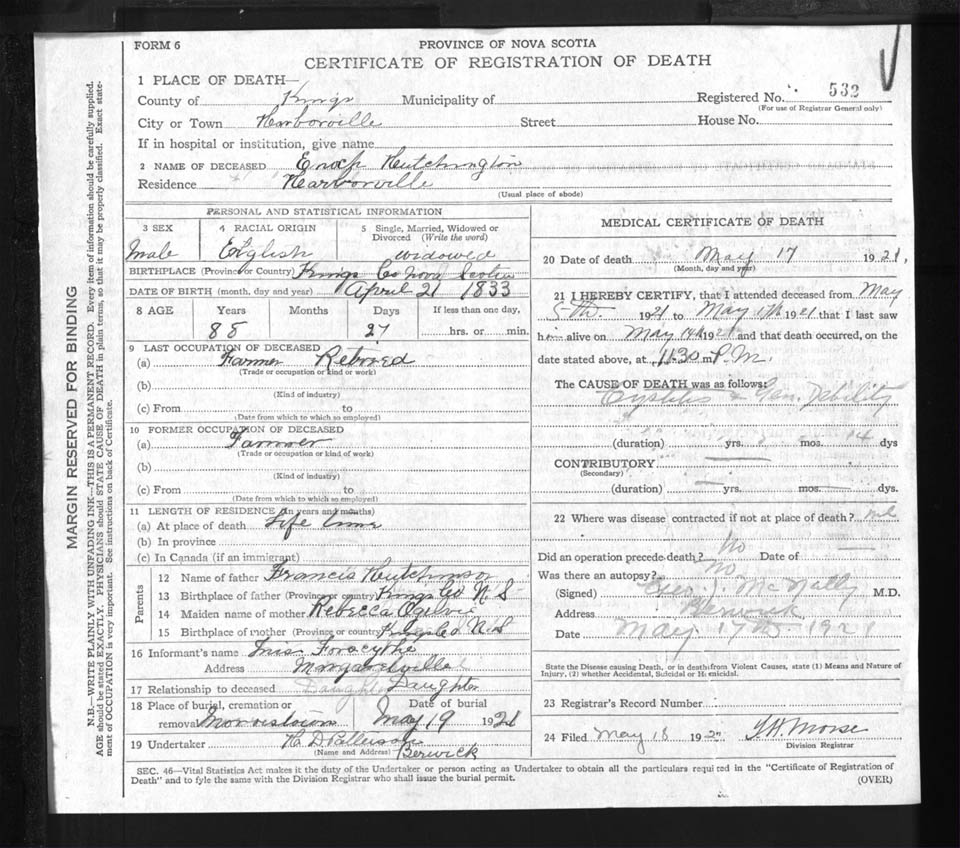 FORM 6
PROVINCE OF NOVA SCOTIA
CERTIFICATE OF REGISTRATION OF DEATH
1 PLACE OF DEATH—
County of Kings Municipality of Registered No. 532
(For use of Registrar General only)
City or Town Harborville Street House No.
If in hospital or institution, give name
2 NAME OF DECEASED Enoch Hutchington
Residence Harborville
(Usual place of abode)
MARGIN RESERVED FOR BINDING
N.B.—WRITE PLAINLY WITH UNFADING INK—THIS IS A PERMANENT RECORD. Every item of information should be carefully supplied.
AGE should be stated EXACTLY. PHYSICIANS should STATE CAUSE OF DEATH in plain terms, so that it may be properly classified. Exact state-
ment of OCCUPATION is very important. See instructions on back of Certificate.
PERSONAL AND STATISTICAL INFORMATION
3 SEX 4 RACIAL ORIGIN 5 Single, Married, Widowed or
Divorced (Write the word)
Male English widowed
BIRTHPLACE (Province or Country) Kings Co Nova Scotia
DATE OF BIRTH (month, day and year) April 21 1833
8 AGE Years Months Days If less than one day,
88 27 hrs. or min.
9 LAST OCCUPATION OF DECEASED
(a) Farmer Retired
(Trade or occupation or kind or work)
(b)
(Kind of industry)
(c) From to
(Date from which to which so employed)
10 FORMER OCCUPATION OF DECEASED
(a) Farmer
(Trade or occupation or kind of work)
(b)
(Kind of industry)
(c) From to
(Date from which to which so employed)
11 LENGTH OF RESIDENCE (In years and months)
(a) At place of death Life time
(b) In province
(c) In Canada (if an immigrant)
Parents
12 Name of father Francis Hutchinson
13 Birthplace of father (Province or country) Kings Co N. S
14 Maiden name of mother Rebecca Ogilvie
15 Birthplace of mother (Province or country) Kings Co N. S
16 Informant's name Forsythe
Address Margaretsville
17 Relationship to deceased Daughter Daughter
18 Place of burial, cremation or Date of burial
removal Morristown May 19 1921
19 Undertaker H. D
(Name and Address) Berwick
MEDICAL CERTIFICATE OF DEATH
20 Date of death May 17 1921,
(Month, day and year)
21 I HEREBY CERTIFY, that I attended deceased from May
5th 1921 to May 17th 1921 that I last saw
him alive on May 14th 1921 and that death occurred, on the
date stated above, at 11.30 m P.M.
The CAUSE OF DEATH was as follows:
Cystitis & Gen. Debility
(duration) yrs. mos. 14 dys
CONTRIBUTORY
(Secondary)
(duration) yrs. mos. dys.
22 Where was disease contracted if not at place of death?
Did an operation precede death? No Date of
Was there an autopsy? No
(Signed) J. McNally M.D.
Address Berwick
Date May 17th 1921
State the Disease causing Death, or in deaths from Violent Causes, state (1) Means and Nature of
Injury, (2) whether Accidental, Suicidal or Homicidal.
23 Registrar's Record Number
24 Filed May 18 192 Morse
Division Registrar
SEC. 46—Vital Statistics Act makes it the duty of the Undertaker or person acting as Undertaker to obtain all the particulars required in the "Certificate of Registration of
Death" and to fyle the same with the Division Registrar who shall issue the burial permit.
(OVER)